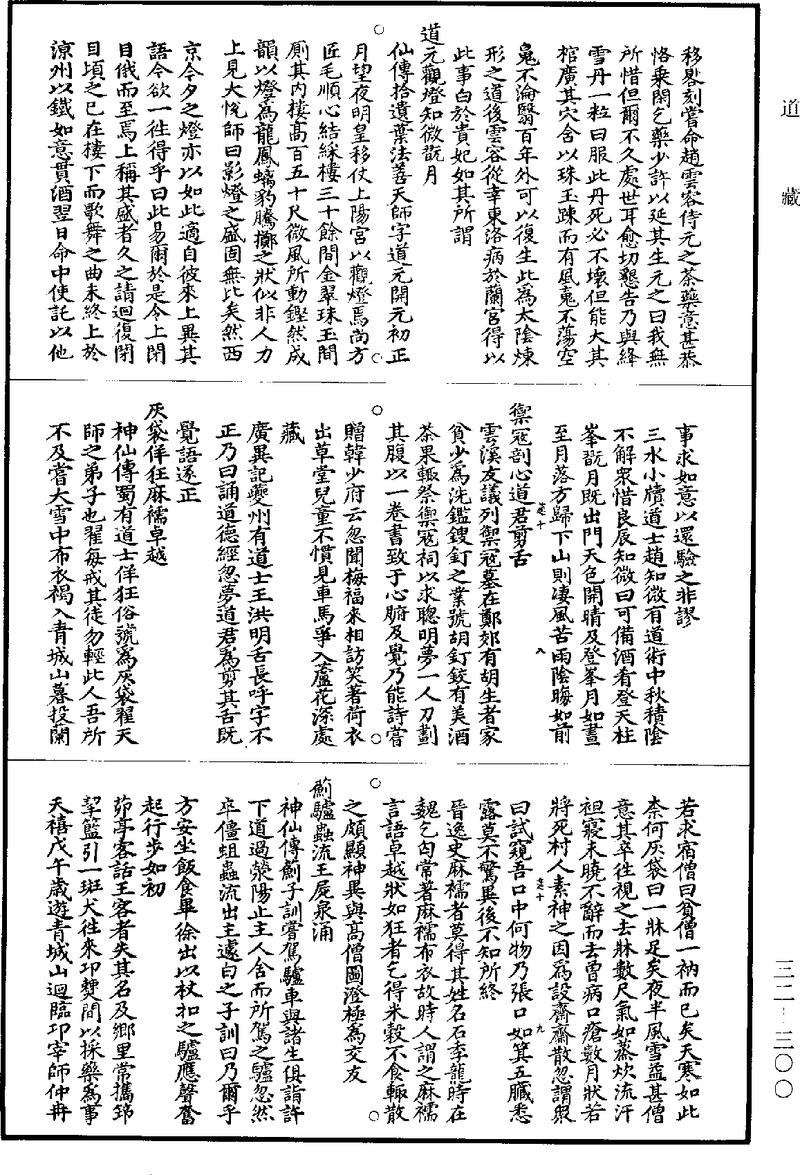 道藏
三二—三〇〇
移晷刻嘗命趙雲容侍元之茶藥意甚恭
恪乘閑乞藥少許以延其生元之曰我無
所惜但爾不久處世耳愈切懇告乃與絳
雪丹一粒曰服此丹死必不壞但能大其
棺廣其穴含以珠玉踈而有風䰟不蕩空
䰟不淪翳百年外可以復生此為太陰煉
形之道後雲容從幸東洛病於蘭宮得以
此事白於貴妃如其所謂
道元觀燈知微翫月
仙傳拾遺葉法善天師字道元開元初正
月望夜明皇移仗上陽宮以觀燈焉尚方
匠毛順心結綵樓三十餘間金翠珠玉間
厠其內樓高百五十尺微風所動鏗然成
韻以燈為龍鳳螭豹騰擲之狀似非人力
上見大悅師曰影燈之盛固無比矣然西
京今夕之燈亦以如此適自彼來上異其
語今欲一往得乎曰此易爾於是令上閉
目俄而至焉上稱其盛者久之請迴復閉
目頃之已在樓下而歌舞之曲未終上於
涼州以鐵如意貫酒翌日命中使託以他
事求如意以還驗之非謬
三水小牘道士趙知微有道術中秋積陰
不解衆惜良辰知微曰可備酒肴登天柱
峯翫月既出門天色開晴及登峯月如晝
至月落方歸下山則凄風苦雨陰晦如前
禦寇剖心道君剪舌
雲溪友議列禦寇墓在鄭郊有胡生者家
貧少為洗鑑鎪釘之業號胡釘鉸有美酒
茶果輒祭禦寇祠以求聰明夢一人刀劃
其腹以一卷書致于心腑及覺乃能詩嘗
贈韓少府云忽聞梅福來相訪笑著荷衣
出草堂兒童不慣見車馬爭入蘆花深處
藏
廣異記夔州有道士王洪明舌長呼字不
正乃曰誦道德經忽夢道君為剪其舌既
覺語遂正
灰袋佯狂麻襦卓越
神仙傳蜀有道士佯狂俗號為灰袋翟天
師之弟子也翟每戒其徒勿輕此人吾所
不及嘗大雪中布衣褐入青城山暮投蘭
若求宿僧曰貧僧一衲而已矣天寒如此
柰何灰袋曰一牀足矣夜半風雪益甚僧
意其卒往視之去牀數尺氣如蒸炊流汗
袒寢未曉不辭而去曾病口瘡數月狀若
將死村人素神之因為設齋齋散忽謂衆
曰試窺吾口中何物乃張口如箕五臟悉
露莫不驚異後不知所終
晉逸史麻襦者莫得其姓名石季龍時在
魏乞匃常著麻襦布衣故時人謂之麻襦
言語卓越狀如狂者乞得米穀不食輒散
之頗顯神異與高僧圖澄極為交友
薊驢蟲流王屍泉涌
神仙傳薊子訓嘗駕驢車與諸生俱詣許
下道過滎陽止主人舍而所駕之驢忽然
卒僵蛆蟲流出主遽白之子訓曰乃爾乎
方安坐飯食畢徐出以杖扣之驢應聲奮
起行步如初
茆亭客話王客者失其名及鄉里常攜筇
挈籃引一斑犬往來卭雙間以採藥為事
天禧戊午歲遊青城山迴臨卭宰師仲冉